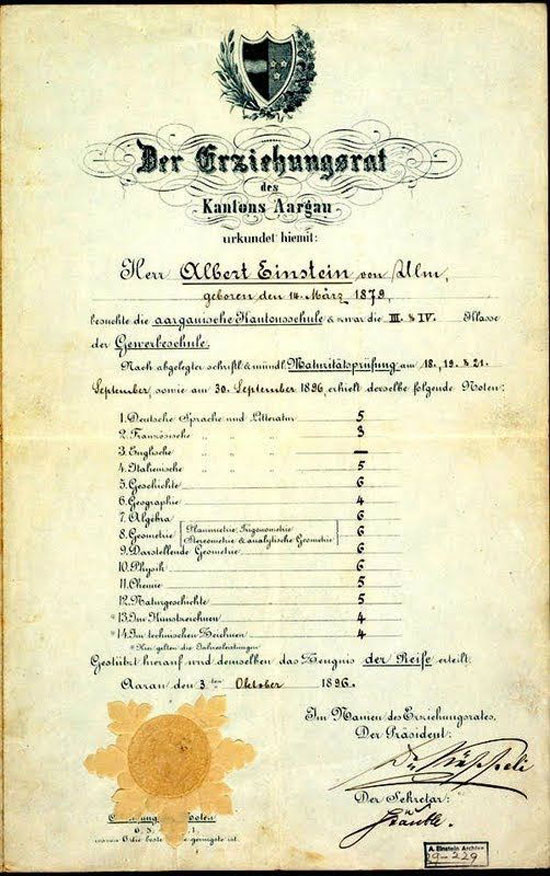 Der Erziehungsrat
des
Kantons Aargau
urkundet hiemit:
Herr Albert Einstein von Ulm,
geboren den 14. März 1879,
besuchte die aargauische Kantonsschule & zwar die III. & IV. Klasse
der Gewerbeschule.
Nach abgelegter schriftl. & mündl. Maturitätsprüfung am 18., 19. & 21.
September, sowie am 30. September 1896, erhielt derselbe folgende Noten:
1. Deutsche Sprache und Litteratur 5
2. Französische " " " 3
3. Englische " " " —
4. Italienische " " " 5
5. Geschichte 6
6. Geographie 4
7. Algebra 6
8. Geometrie Planimetrie, Trigonometrie 6
Stereometrie & analytische Geometrie
9. Darstellende Geometrie 6
10. Physik 6
11. Chemie 5
12. Naturgeschichte 5
*13. Im Kunstzeichnen 4
*14. Im technischen Zeichnen 4
* Hier gelten die Jahresleistungen
Gestützt hierauf wird demselben das Zeugnis der Reife erteilt.
Aarau den 3ten Oktober 1896.
Im Namen des Erziehungsrates,
Der Präsident:
Der Sekretär:
Noten
6. 5. 1
wovon 6 die beste geringste ist.
A. Einstein Archive
29-229